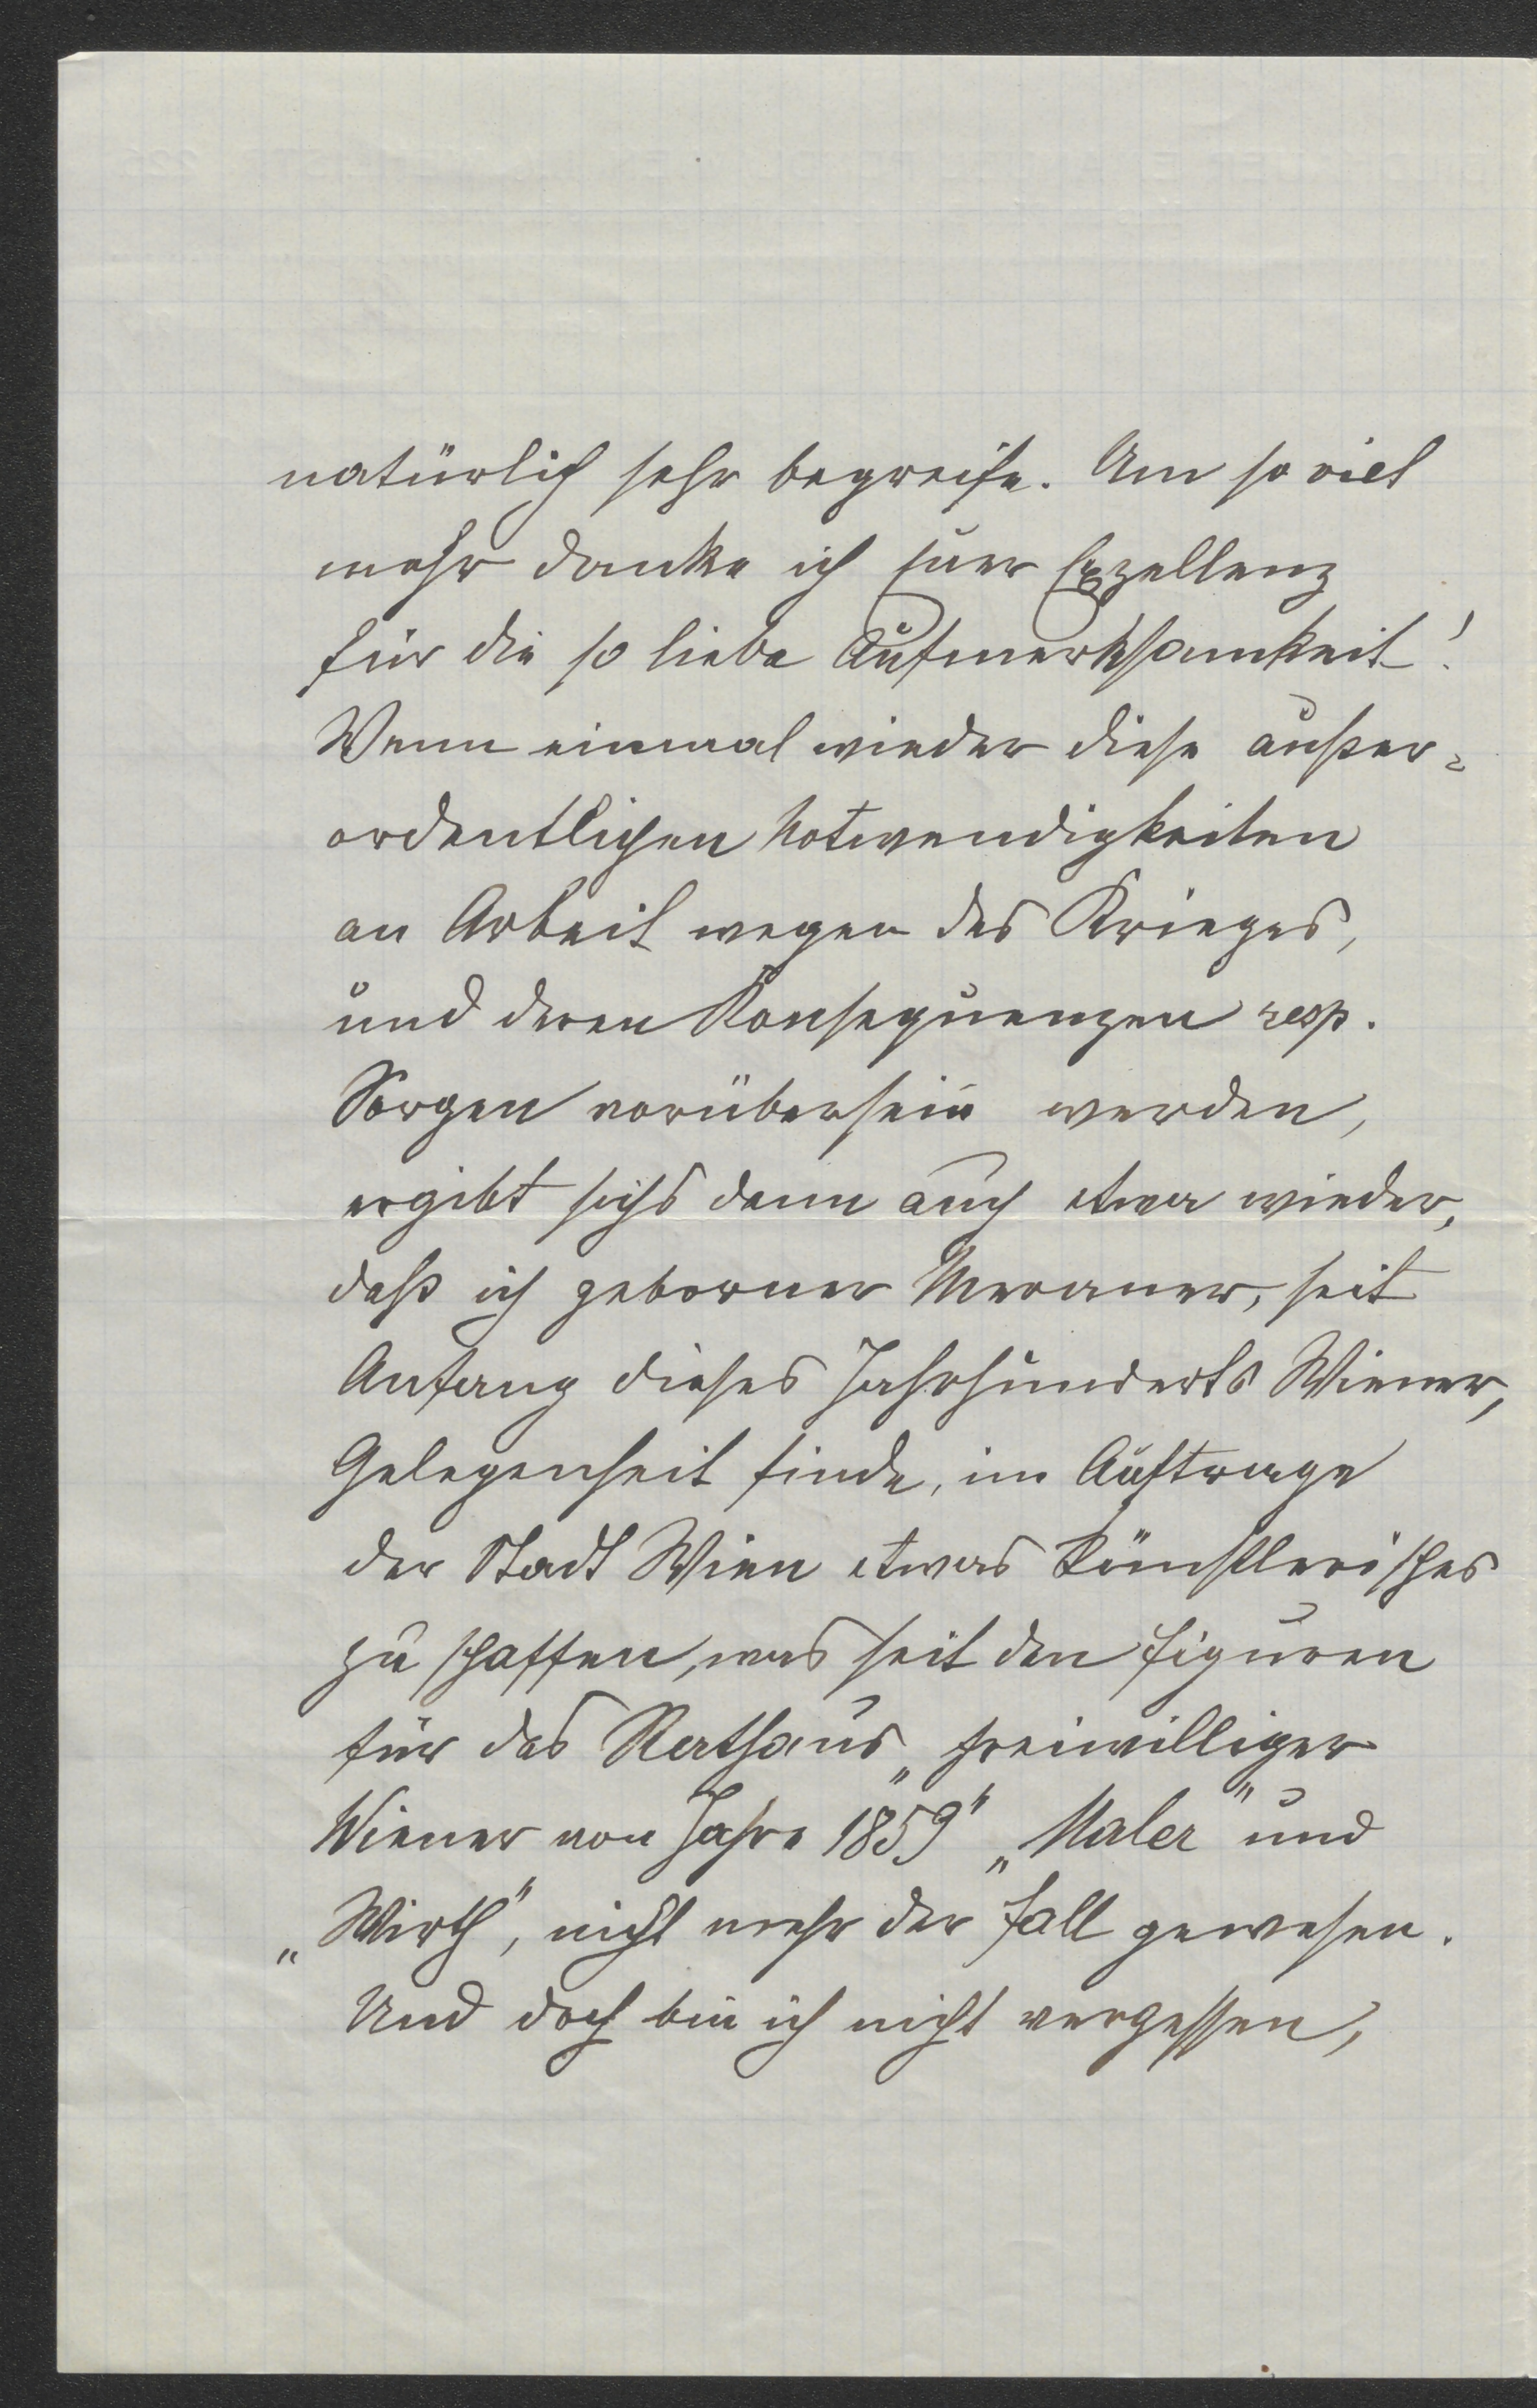 natürlich sehr begreife. Um so viel
mehr danke ich Euer Exzellenz
für die so liebe Aufmerksamkeit!
Wenn einmal wieder diese außer=
ordentlichen Notwendigkeiten
an Arbeit wegen des Krieges,
und deren Konsequenzen resp.
Sorgen vorübersein werden,
ergibt sichs dann auch etwa wieder,
daß ich geborner Meraner, seit
Anfang dieses Jahrhunderts Wiener,
Gelegenheit finde, im Auftrage
der Stadt Wien etwas künstlerisches
zu schaffen, was seit den Figuren
für das Rathaus „freiwilliger
Wiener von Jahre 1859" „Maler" und
„Wirth", nicht mehr der Fall gewesen.
Und doch bin ich nicht vergessen,